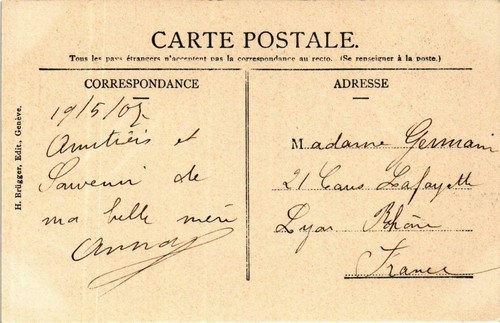 CARTE POSTALE.
Tous les pays étrangers n'acceptent pas la correspondance au recto. (Se renseigner à la poste.)
CORRESPONDANCE
19/5/07
Amitiés et
Souvenir de
ma belle mère
Anna
ADRESSE
Madame Germain
21 Cours Lafayette
Lyon Rhône
France
H. Brügger, Edit., Genève.